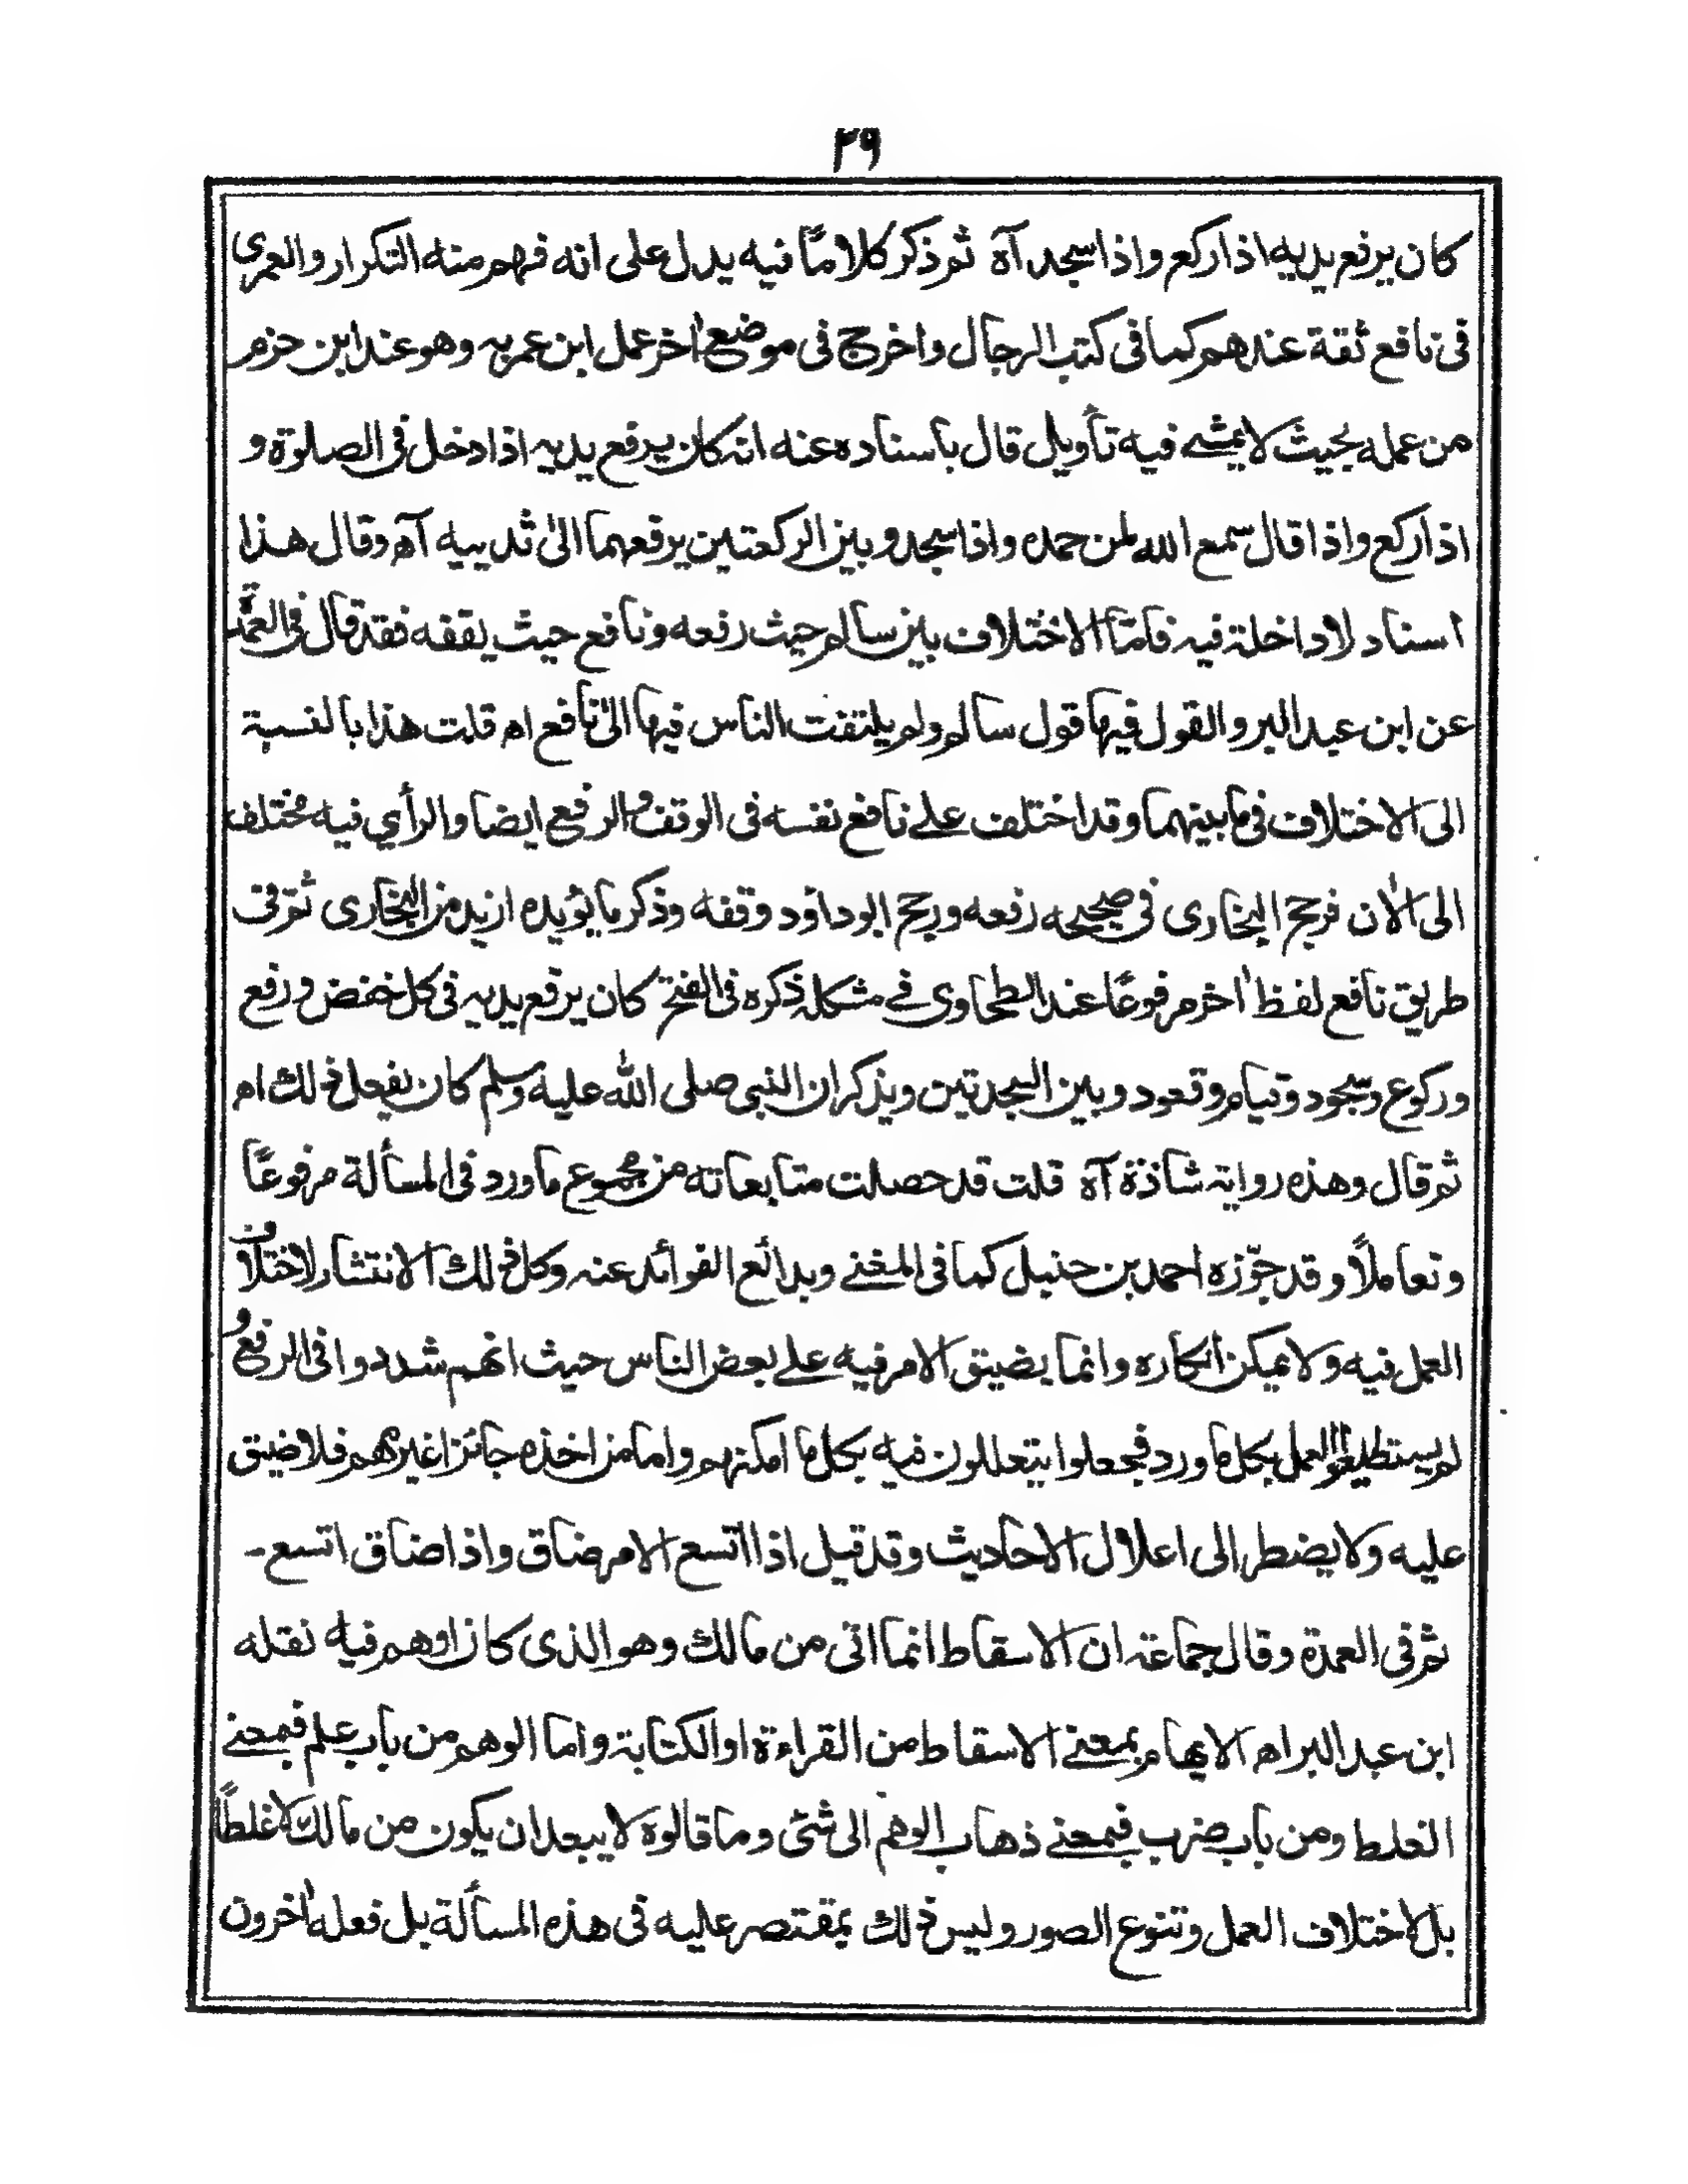 ٢٩
كان يرفع يديه اذا ركع واذا سجد آه ثم ذكر كلامًا فيه يدل على انه فهم منه التكرار والعمرى
فى نافع ثقة عندهم كما فى كتب الرجال واخرج فى موضع اٰخر عمل ابن عمر به وهو عند ابن حزم
من عمله بحيث لا يمشے فيه تأويل قال باسناده عنه انه كان يرفع يديه اذا دخل فى الصلوٰة و
اذا ركع واذا قال سمع الله لمن حمده واذا سجد وبين الركعتين يرفعهما الىٰ ثدييه آه وقال هذا
اسناد لا داخلة فيه فامّا الاختلاف بين سالم حيث رفعه ونافع حيث يقفه فقد قال فى العمدة
عن ابن عبد البر والقول فيها قول سالم ولم يلتفت الناس فيها الىٰ نافع اه قلت هذا بالنسبة
الى الاختلاف فى ما بينهما وقد اختلف علے نافع نفسه فى الوقف والرفع ايضا والرأي فيه مختلف
الى الاٰن فرجح البخارى فى صحيحه رفعه ورجح ابو داؤد وقفه وذكر ما يؤيده ازيد من البخارى ثم فى
طريق نافع لفظ اٰخر مرفوعًا عند الطحاوى فے مشكله ذكره فى الفتح كان يرفع يديه فى كل خفض ورفع
وركوع وسجود وقيام وقعود وبين السجدتين ويذكر ان النبى صلى الله عليه وسلم كان يفعل ذلك اه
ثم قال وهذه رواية شاذة آه قلت قد حصلت متابعاته من مجموع ما ورد فى المسألة مرفوعًا
وتعاملاً وقد جوّزه احمد بن حنبل كما فى المغنے وبدائع الفوائد عنه وكل ذلك الانتشار لاختلاف
العمل فيه ولا يمكن انكاره وانما يضيق الامر فيه علے بعض الناس حيث انهم شددوا فى الرفع و
لم يستطيعوا العمل بكل ما ورد فجعلوا يتعللون فيه بكل ما امكنهم واما من اخذه جائزا غيرهم فلا ضيق
عليه ولا يضطر الى اعلال الاحاديث وقد قيل اذا اتسع الامر ضاق واذا ضاق اتسع ـ
ثم فى العمدة وقال جماعة ان الاسقاط انما اتى من مالك وهو الذى كان اوهم فيه نقله
ابن عبد البر اه الايهام بمعنے الاسقاط من القراءة او الكتابة واما الوهم من باب علم فبمعنے
الغلط ومن باب ضرب فبمعنے ذهاب الوهم الى شئ وما قالوه لا يبعد ان يكون من مالك لا غلطًا
بل لاختلاف العمل وتنوع الصور وليس ذلك بمقتصر عليه فى هذه المسألة بل فعله اٰخرون